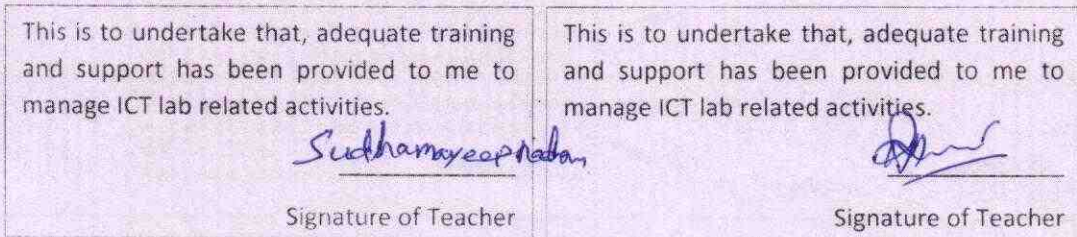 This is to undertake that, adequate training
and support has been provided to me to
manage ICT lab related activities.
Signature of Teacher
This is to undertake that, adequate training
and support has been provided to me to
manage ICT lab related activities.
Signature of Teacher